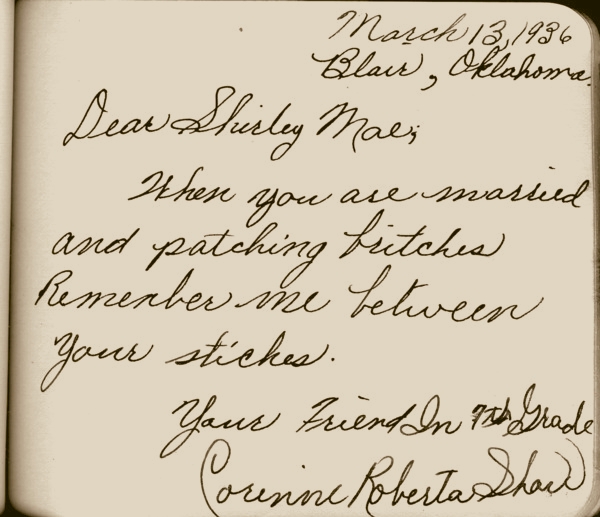 March 13, 1936
Blair, Oklahoma.
Dear Shirley Mae;
When you are married
and patching britches
Remember me between
your stiches.
Your Friend In 7th Grade
Corinne Roberta Shaw